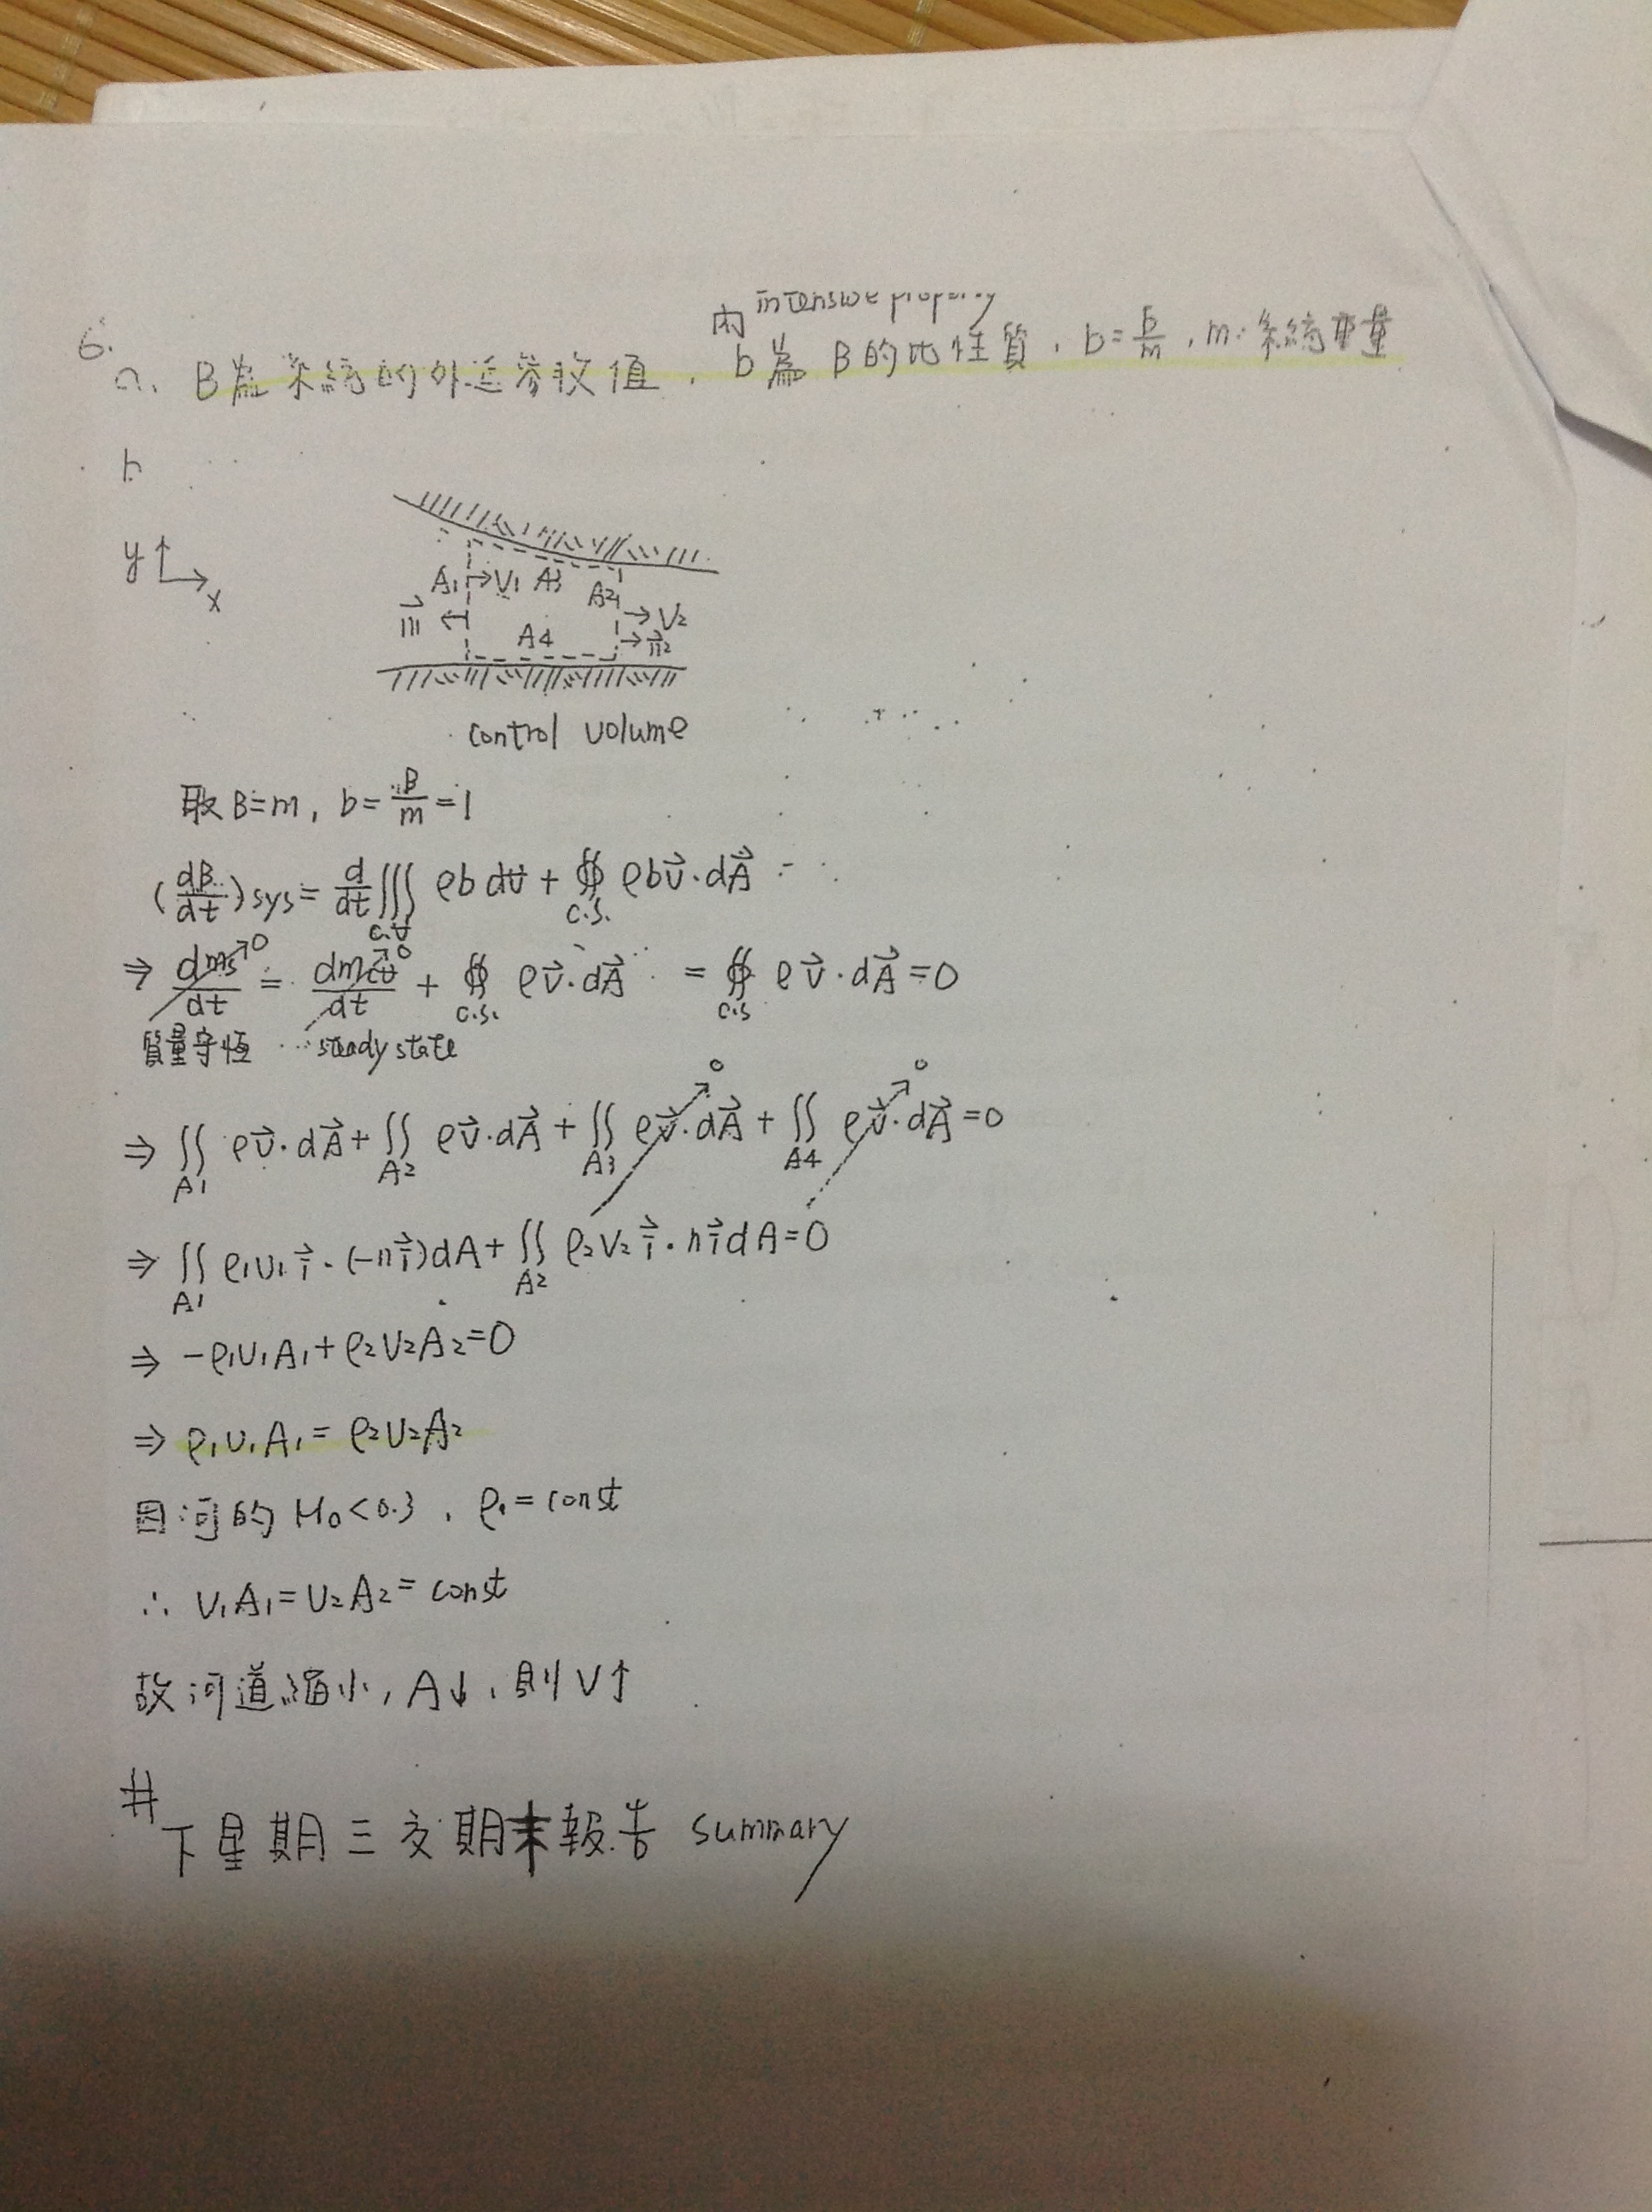 內 intensive property
6.
a. B為系統的外延參數值, b為B的比性質, b=B/m, m:系統質量
b
y
x
A1 → V1 A3
A2 → V2
n1
A4
→ n2
control volume
取B=m, b=B/m=1
(dB/dt)sys = d/dt ∭c.v ρb dV + ∯c.s. ρb v⃗·dA⃗
⇒ dms/dt ↗0 = dmcv/dt ↗0 + ∯c.s. ρv⃗·dA⃗ = ∯c.s ρv⃗·dA⃗ = 0
質量守恆 steady state
⇒ ∬A1 ρv⃗·dA⃗ + ∬A2 ρv⃗·dA⃗ + ∬A3 ρv⃗·dA⃗ ↗0 + ∬A4 ρv⃗·dA⃗ ↗0 = 0
⇒ ∬A1 ρ1v1 i⃗·(-n i⃗)dA + ∬A2 ρ2v2 i⃗·n i⃗ dA = 0
⇒ -ρ1v1A1+ρ2v2A2=0
⇒ ρ1v1A1=ρ2v2A2
因河的 Ma<0.3, ρ=const
∴ v1A1=v2A2=const
故河道縮小, A↓, 則V↑
#
下星期三交期末報告 summary